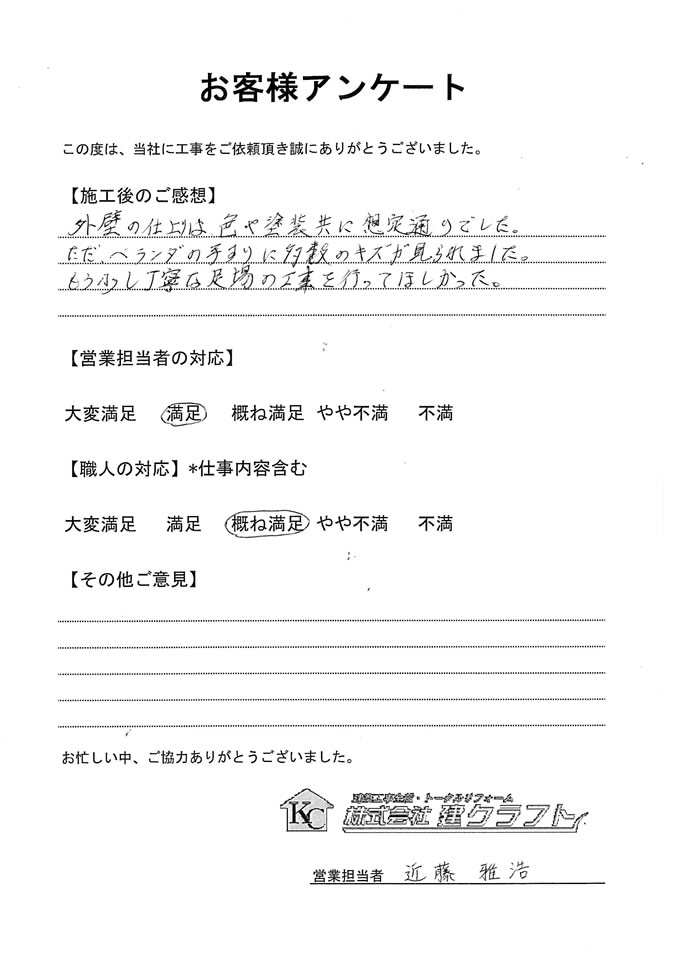 お客様アンケート
この度は、当社に工事をご依頼頂き誠にありがとうございました。
【施工後のご感想】
外壁の仕上は色や塗装共に想定通りでした。
ただ、ベランダの手すりに多数のキズが見られました。
もう少し丁寧な足場の工事を行ってほしかった。
【営業担当者の対応】
大変満足 満足 概ね満足 やや不満 不満
【職人の対応】*仕事内容含む
大変満足 満足 概ね満足 やや不満 不満
【その他ご意見】
お忙しい中、ご協力ありがとうございました。
KC
建築工事全般・トータルリフォーム
株式会社 建クラフト
営業担当者 近藤 雅浩